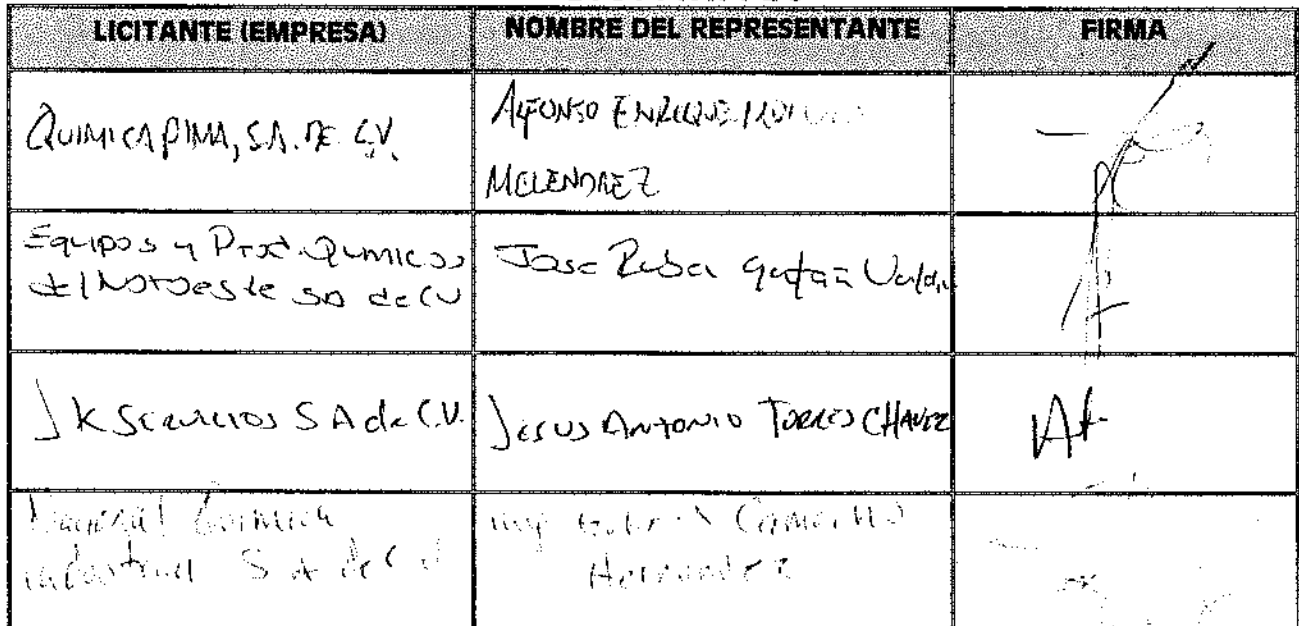 LICITANTE (EMPRESA)
NOMBRE DEL REPRESENTANTE
FIRMA
QUIMICA PIMA, S.A. DE C.V.
ALFONSO ENRIQUE
MELENDREZ
Equipos y Prod. Quimicos
del Noroeste SA de CV
Jose
JK Servicios S A de C.V.
JESUS ANTONIO TORRES CHAVEZ
Quimica
industrial S A de C V
Ing
Hernandez